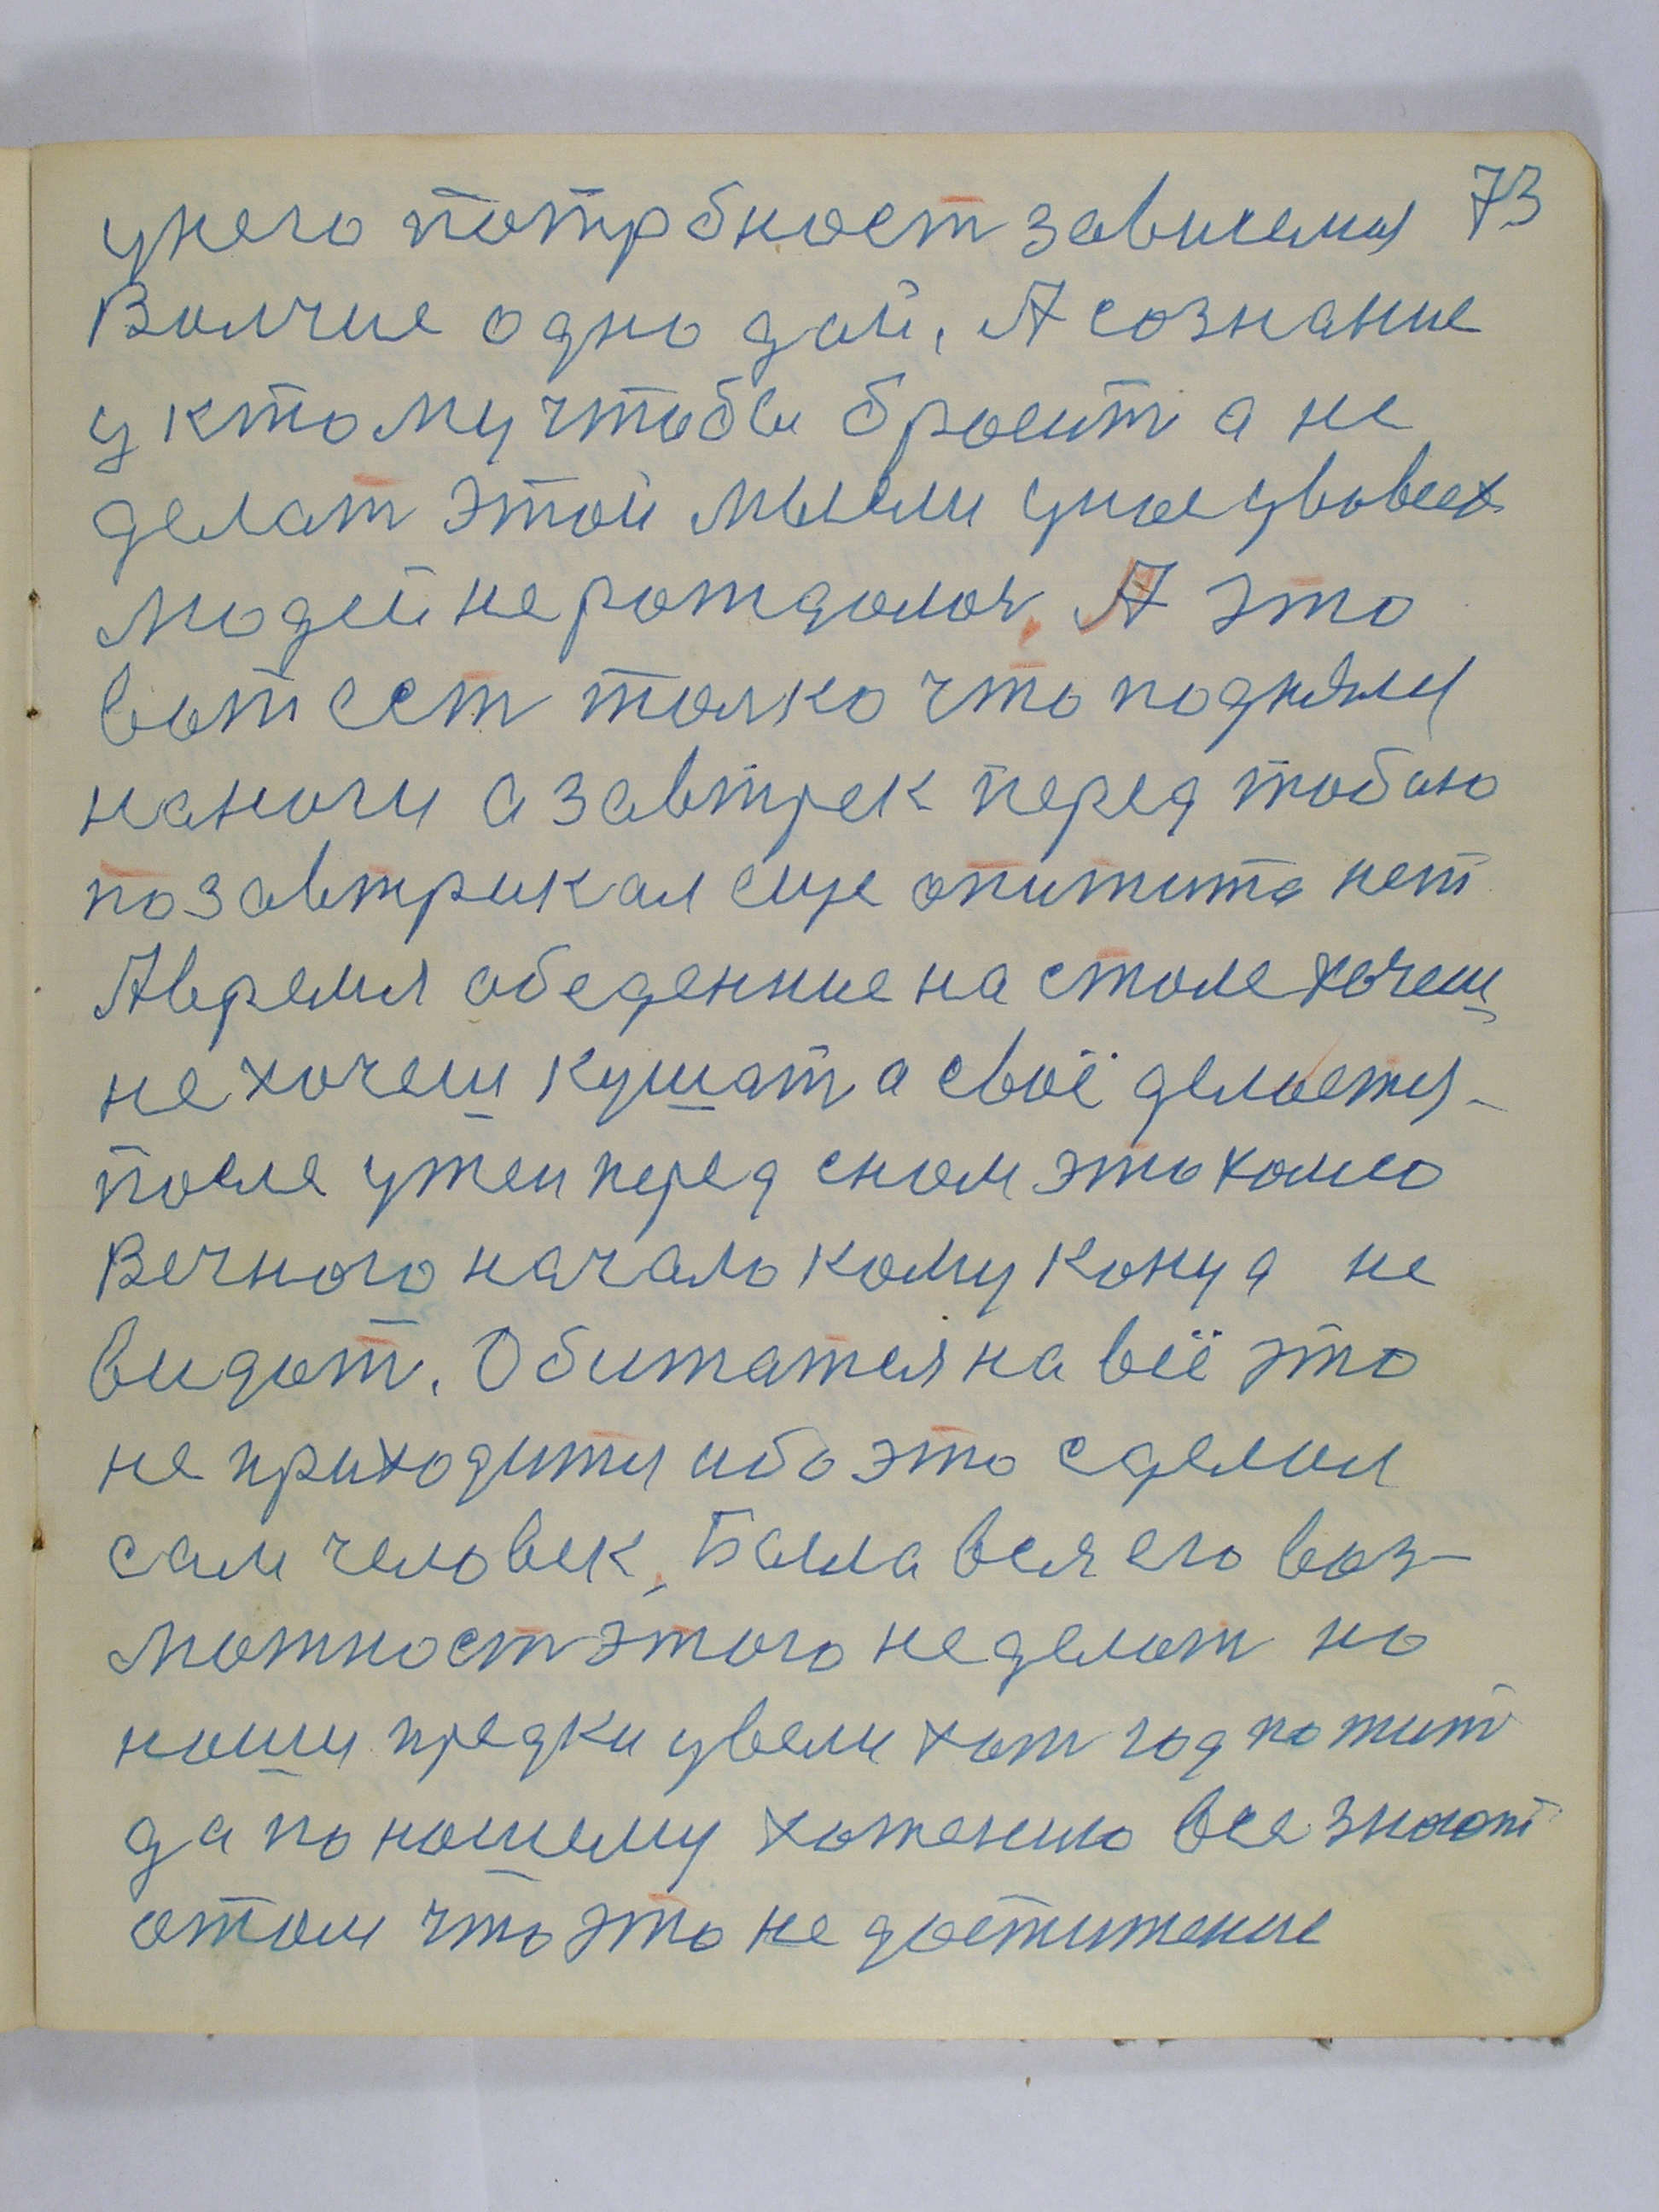 73
унего потрбност зависемия
Волчие одно дай, А сознание
у ктому чтобы бросит а не
делат этой мысли уное увовсех
людей не рождалоя, А это
вот сест толко что поднялия
наноги а завтрек перед тобою
позавтрикал еще опитита нет
Авремя обеденние на столе хочеш
не хочеш кушат а своё делаетия -
после ужен перед сном это хамло
Вечного начало кому конца не
видат. Обижатея на всё это
не приходития ибо это сделал
сам человек, Была вся его воз-
можност этого неделат но
наши предки увели хот год пожит
да по нашему хотению все знают
отом что это не достижение